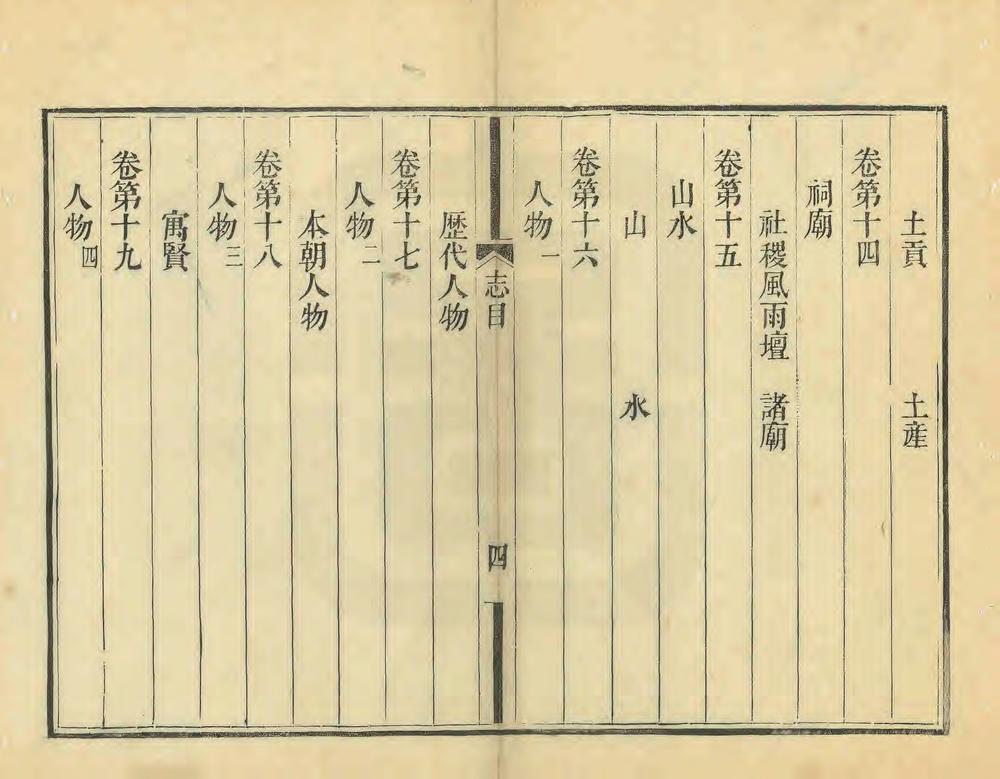 土貢　土産
卷第十四
祠廟
社稷風雨壇　諸廟
卷第十五
山水
山　水
卷第十六
人物一
志目　四
歷代人物
卷第十七
人物二
本朝人物
卷第十八
人物三
寓賢
卷第十九
人物四